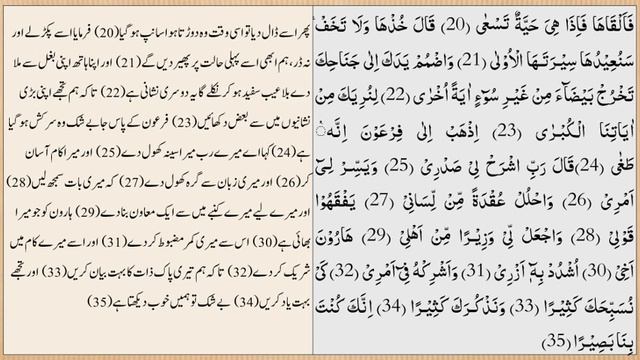 فَاَلْقَاهَا فَاِذَا هِىَ حَيَّةٌ تَسْعٰى (20) قَالَ خُذْهَا وَلَا تَخَفْ ۖ
سَنُعِيْدُهَا سِيْرَتَهَا الْاُوْلٰى (21) وَاضْمُمْ يَدَكَ اِلٰى جَنَاحِكَ
تَخْرُجْ بَيْضَآءَ مِنْ غَيْرِ سُوٓءٍ اٰيَةً اُخْرٰى (22) لِنُرِيَكَ مِنْ
اٰيَاتِنَا الْكُبْـرٰى (23) اِذْهَبْ اِلٰى فِرْعَوْنَ اِنَّهٝ
طَغٰى (24) قَالَ رَبِّ اشْرَحْ لِىْ صَدْرِىْ (25) وَيَسِّرْ لِـىٓ
اَمْرِىْ (26) وَاحْلُلْ عُقْدَةً مِّنْ لِّسَانِىْ (27) يَفْقَهُوْا
قَوْلِىْ (28) وَاجْعَلْ لِّىْ وَزِيْـرًا مِّنْ اَهْلِىْ (29) هَارُوْنَ
اَخِىْ (30) اُشْدُدْ بِهٓ ٖ اَزْرِىْ (31) وَاَشْرِكْهُ فِىٓ اَمْرِىْ (32) كَىْ
نُسَبِّحَكَ كَثِيْـرًا (33) وَنَذْكُـرَكَ كَثِيْـرًا (34) اِنَّكَ كُنْتَ
بِنَا بَصِيْـرًا (35)
پھر اسے ڈال دیا تو اسی وقت وہ دوڑتا ہوا سانپ ہو گیا (20) فرمایا اسے پکڑ لے اور
نہ ڈر، ہم ابھی اسے پہلی حالت پر پھیر دیں گے (21) اور اپنا ہاتھ اپنی بغل سے ملا
دے بلا عیب سفید ہو کر نکلے گا یہ دوسری نشانی ہے (22) تاکہ ہم تجھے اپنی بڑی
نشانیوں میں سے بعض دکھائیں (23) فرعون کے پاس جا بے شک وہ سرکش ہو گیا
ہے (24) کہا اے میرے رب میرا سینہ کھول دے (25) اور میرا کام آسان
کر (26) اور میری زبان سے گرہ کھول دے (27) کہ میری بات سمجھ لیں (28)
اور میرے لیے میرے کنبے میں سے ایک معاون بنا دے (29) ہارون کو جو میرا
بھائی ہے (30) اس سے میری کمر مضبوط کر دے (31) اور اسے میرے کام میں
شریک کر دے (32) تاکہ ہم تیری پاک ذات کا بہت بیان کریں (33) اور تجھے
بہت یاد کریں (34) بے شک تو ہمیں خوب دیکھتا ہے (35)